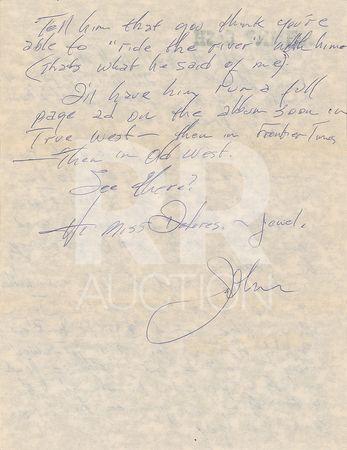 Tell him that you think you're
able to "ride the river" with him
(that's what he said of me).
I'll have him run a full
page ad on the album soon in
True West — then in Frontier Times
— Then in Old West.
See there?
Hi Miss Delores. ~ Jewel.
John
RR
AUCTION